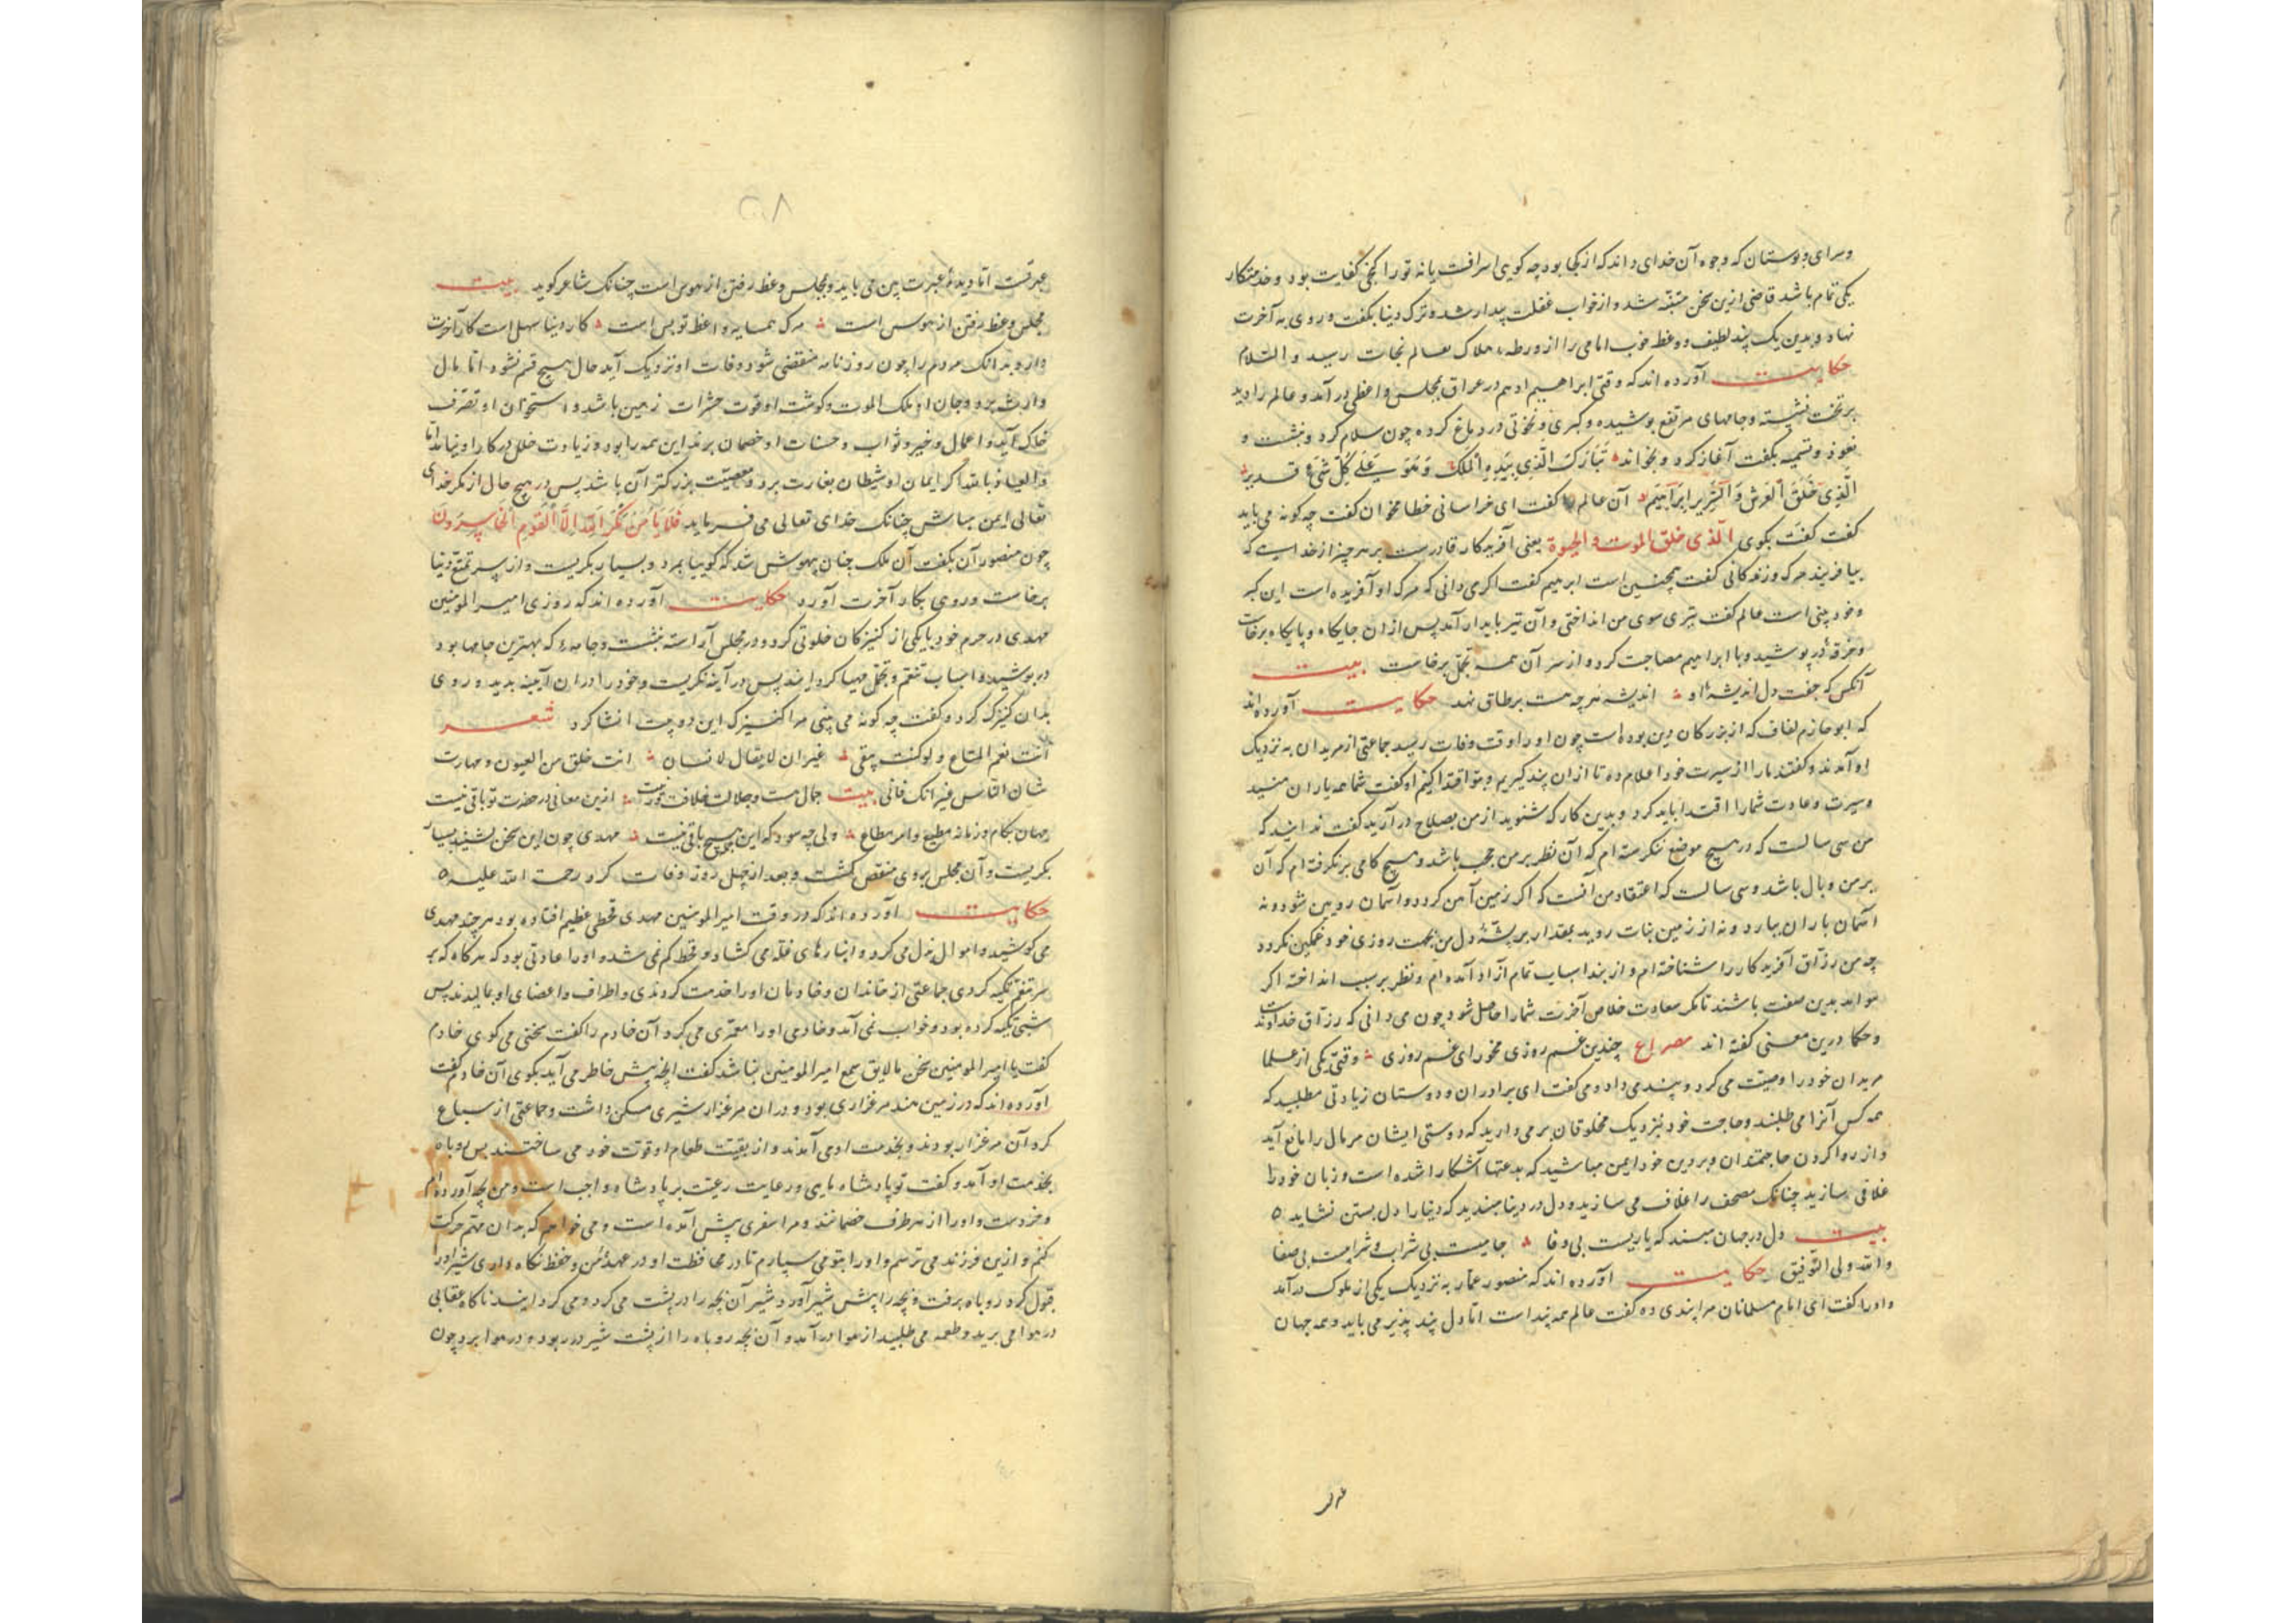 وسرای و بوستان که وجوه آن خدای داند که از کجا بود چه گویی اسرافست یا نه تو را کنجی کفایت بود و خدمتکار
یکی تمام باشد قاضی ازین سخن متنبه شد و از خواب غفلت بیدار شد و ترک دنیا بگفت و روی به آخرت
نهاد و بدین یک پند لطیف و وعظ خوب امامی را از ورطه هلاک بعالم نجات رسید و السلام
حکایت آورده اند که وقتی ابراهیم ادهم در عراق بمجلس واعظی در آمد و عالم را دید
بر تخت نشسته و جامهای مرتفع پوشیده و کبری و نخوتی در دماغ کرده چون سلام کرد و بنشست و
تعوذ و تسمیه بگفت آغاز کرد و بخواند تَبَارَکَ الَّذِی بِیَدِهِ الْمُلْکُ وَهُوَ عَلَی کُلِّ شَیْءٍ قدیر
الَّذِی خَلَقَ الْعَرْشَ وَ ابراهیم آن عالم گفت ای خراسانی خطا مخوان گفت چه کونه می باید
گفت گفت بگوی الذی خلق الموت و الحیوة یعنی آفریدکار قادرست بر هر چیز از خداست که
بیافریند مرک و زندکانی گفت همچنین است ابراهیم گفت اگر می دانی که مرک او آفریده است این کبر
و خود بینی است عالم گفت تیری سوی من انداختی و آن تیر بایدار آمد پس از ان جایکاه و پایکاه برخاست
و خرقه در پوشید و با ابراهیم مصاحبت کرد و از سر آن همه تجمل برخاست بیت
آنکس که جفت دل اندیشه او اندیشه هرچه هست بر طاق نهد حکایت آورده اند
که ابو حازم لفاف که از بزرکان دین بوده است چون او را وقت وفات رسید جماعتی از مریدان به نزدیک
او آمدند و گفتند ما را از سیرت خود اعلام ده تا از ان پند گیریم و بتو اقتدا کنیم او گفت شما همه یاران منید
و سیرت و عادت شما را اقتدا باید کرد و بدین کار که شنوید از من بصلاح در آرید گفت ندانید که
من سی سالست که در هیچ موضع ننکرسته ام که آن نظر بر من حجب باشد و هیچ کامی برنکرفته ام که آن
بر من وبال باشد و سی سالست که اعتقاد من آنست که اگر زمین آهن کردد و آسمان رویین شود و نه
آسمان باران ببارد و نه از زمین نبات روید بمقدار بر پشه دل من بجهت روزی خود غمکین نکردد
چه من رزاق آفریدکار را شناخته ام و از بند اسباب تمام آزاد آمده ام و نظر بر سبب انداخته اگر
خواهد بدین صفت باشند تا مکر سعادت خلاص آخرت شما را حاصل شود چون می دانی که رزاق خداوند است
و حکما درین معنی گفته اند مصراع چندین غم روزی مخور ای غم روزی وقتی یکی از علما
مریدان خود را وصیت می کرد و پند می داد و می گفت ای برادران و دوستان زیادتی مطلبید که
همه کس آنرا می طلبند و حاجت خود بنزدیک مخلوقان بر می دارید که دوستی ایشان مر مال را مانع آید
و از روا کردن حاجتمندان و بر دین خود ایمن مباشید که بدعتها آشکارا شده است و زبان خود را
غلافی سازید چنانک مصحف را غلاف می سازید و دل در دنیا مبندید که دنیا را دل بستن نشاید
بیت دل در جهان مبند که یاریست بی وفا جامیست بی شراب و شرابیست بی صفا
و الله ولی التوفیق حکایت آورده اند که منصور عمار به نزدیک یکی از ملوک در آمد
و او را گفت ای امام مسلمانان مرا پندی ده گفت عالم همه پند است اما دل پند پذیر می باید و همه جهان
عبرتست اما دیده عبرت بین می باید و بمجلس وعظ رفتن از هوس است چنانک شاعر گوید بیت
مجلس وعظ رفتن از هوس است مرک همسایه واعظ تو بس است کار دنیا سهل است کار آخرت
دارد بدانک مردم را چون روزنامه منقضی شود و وفات او نزدیک آید حال هیچ قسم نشود اما مال
وارث برد و جان او ملک الموت و کوشت او قوت حشرات زمین باشد و استخوان او تصرف
خاک آید و اعمال و خیر و ثواب و حسنات او خصمان برند این همه را بود و زیادت خلل در کار او نیاید اما
و العیاذ بالله اگر ایمان او شیطان بغارت برد و معصیت بزرکتر آن باشد پس در هیچ حال از مکر خدای
تعالی ایمن مباش چنانک خدای تعالی می فرماید فَلَا یَأْمَنُ مَکْرَ اللهِ اِلَّا الْقَوْمُ الْخَاسِرُونَ
چون منصور آن بگفت آن ملک چنان بیهوش شد که گوییا بمرد و بسیار بگریست و از سر تمتع دنیا
برخاست و روی بکار آخرت آورد حکایت آورده اند که روزی امیر المومنین
مهدی در حرم خود با یکی از کنیزکان خلوتی کرد و در مجلس آراسته بنشست و جامه که بهترین جامها بود
در پوشید و اسباب تنعم و تجمل مهیا کردانید پس در آینه نکریست و خود را در ان آیینه بدید و روی
بدان کنیزک کرد و گفت چه کونه می بینی مرا کنیزک این دو بیت انشا کرد شعر
انت نعم المتاع و لو کنت تبقی غیر ان لا بقاء لانسان انت خلق من العیون و مهارت
شان الناس غیر انک فانی بیت جمال هست و جلالت خلافت تو نیست ازین معانی در حضرت تو باقی نیست
جهان بکام و زمانه مطیع و امر مطاع ولی چه سود که این هیچ باقی نیست مهدی چون این سخن بشنید بسیار
بگریست و آن مجلس بر وی منغص کشت و بعد از چهل روز وفات کرد رحمت الله علیه
حکایت آورده اند که در وقت امیر المومنین مهدی قحطی عظیم افتاده بود هر چند مهدی
می کوشید و اموال بذل می کرد و انبارهای غله می کشاد و قحط کم نمی شد و او را عادتی بود که هر کاه که بر
سر تنعم تکیه کردی جماعتی از خاندان و خادمان او را خدمت کردندی و اطراف و اعضای او بمالیدند پس
شبی تکیه کرده بود و خواب نمی آمد و خادمی او را مغمزی می کرد آن خادم را گفت سخنی می کوی خادم
گفت یا امیر المومنین سخن ما لایق سمع امیر المومنین نباشد گفت آنچه پیش خاطر می آید بکوی آن خادم گفت
آورده اند که در زمین هند مرغزاری بود و در ان مرغزار شیری مسکن داشت و جماعتی از سباع
کرد آن مرغزار بودند و بخدمت او می آمدند و از بقیت طعام او قوت خود می ساختند پس روباه
بخدمت او آمد و گفت تو پادشاه مایی و رعایت رعیت بر پادشاه واجب است و من بچه آورده ام
و خردست و او را از هر طرف خصمانند و مرا سفری پیش آمده است و می خواهم که بدان مهم حرکت
کنم و ازین فرزند می ترسم و او را بتو می سپارم تا در محافظت او در عهد امن و حفظ نکاه داری شیر او را
قبول کرد روباه برفت و بچه را پیش شیر آورد و شیر آن بچه را در پشت می کرد و می کردانید ناکاه عقابی
در هوا می پرید و طعمه می طلبید از هوا در آمد و آن بچه روباه را از پشت شیر در ربود و در هوا برد چون